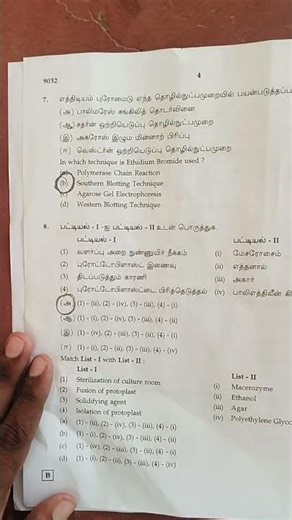 9032
4
7. எத்திடியம் புரோமைடு எந்த தொழில்நுட்பமுறையில்
(அ) பாலிமரேஸ் சங்கிலித் தொடர்வினை
(ஆ) சதர்ன் ஒற்றியெடுப்பு தொழில்நுட்பமுறை
(இ) அகரோஸ் இழும மின்னாற் பிரிப்பு
(ஈ) வெஸ்டர்ன் ஒற்றியெடுப்பு தொழில்நுட்பமுறை
In which technique is Ethidium Bromide used ?
(a) Polymerase Chain Reaction
(b) Southern Blotting Technique
(c) Agarose Gel Electrophoresis
(d) Western Blotting Technique
8. பட்டியல் - I -ஐ பட்டியல் - II உடன் பொருத்துக.
பட்டியல் - I பட்டியல் - II
(1) வளர்ப்பு அறை நுண்ணுயிர் நீக்கம் (i) மேசரோசைம்
(2) புரோட்டோபிளாஸ்ட் இணைவு (ii) எத்தனால்
(3) திடப்படுத்தும் காரணி (iii) அகார்
(4) புரோட்டோபிளாஸ்டை பிரித்தெடுத்தல் (iv)
(அ) (1) - (ii), (2) - (iv), (3) - (iii), (4) - (i)
(ஆ) (1) - (i), (2) - (iv), (3) - (iii), (4) - (ii)
(இ) (1) - (iv), (2) - (ii), (3) - (iii), (4) - (i)
(ஈ) (1) - (i), (2) - (ii), (3) - (iii), (4) - (iv)
Match List - I with List - II :
List - I List - II
(1) Sterilization of culture room (i) Macerozyme
(2) Fusion of protoplast (ii) Ethanol
(3) Solidifying agent (iii) Agar
(4) Isolation of protoplast (iv)
(a) (1) - (ii), (2) - (iv), (3) - (iii), (4) - (i)
(b) (1) - (i), (2) - (iv), (3) - (iii), (4) - (ii)
(c) (1) - (iv), (2) - (ii), (3) - (iii), (4) - (i)
(d) (1) - (i), (2) - (ii), (3) - (iii), (4) - (iv)
B